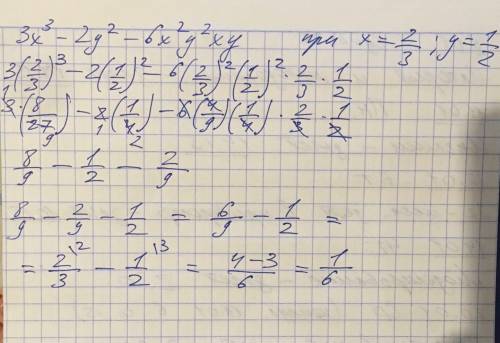 3x³ - 2y² - 6x²y²xy при x = 2/3 ; y = 1/2
3(2/3)³ - 2(1/2)² - 6(2/3)²(1/2)² · 2/3 · 1/2
3 · (8/27) - 2(1/4) - 6(4/9)(1/4) · 2/3 · 1/2
8/9 - 1/2 - 2/9
8/9 - 2/9 - 1/2 = 6/9 - 1/2 =
= 2/3 \2 - 1/2 \3 = 4-3/6 = 1/6